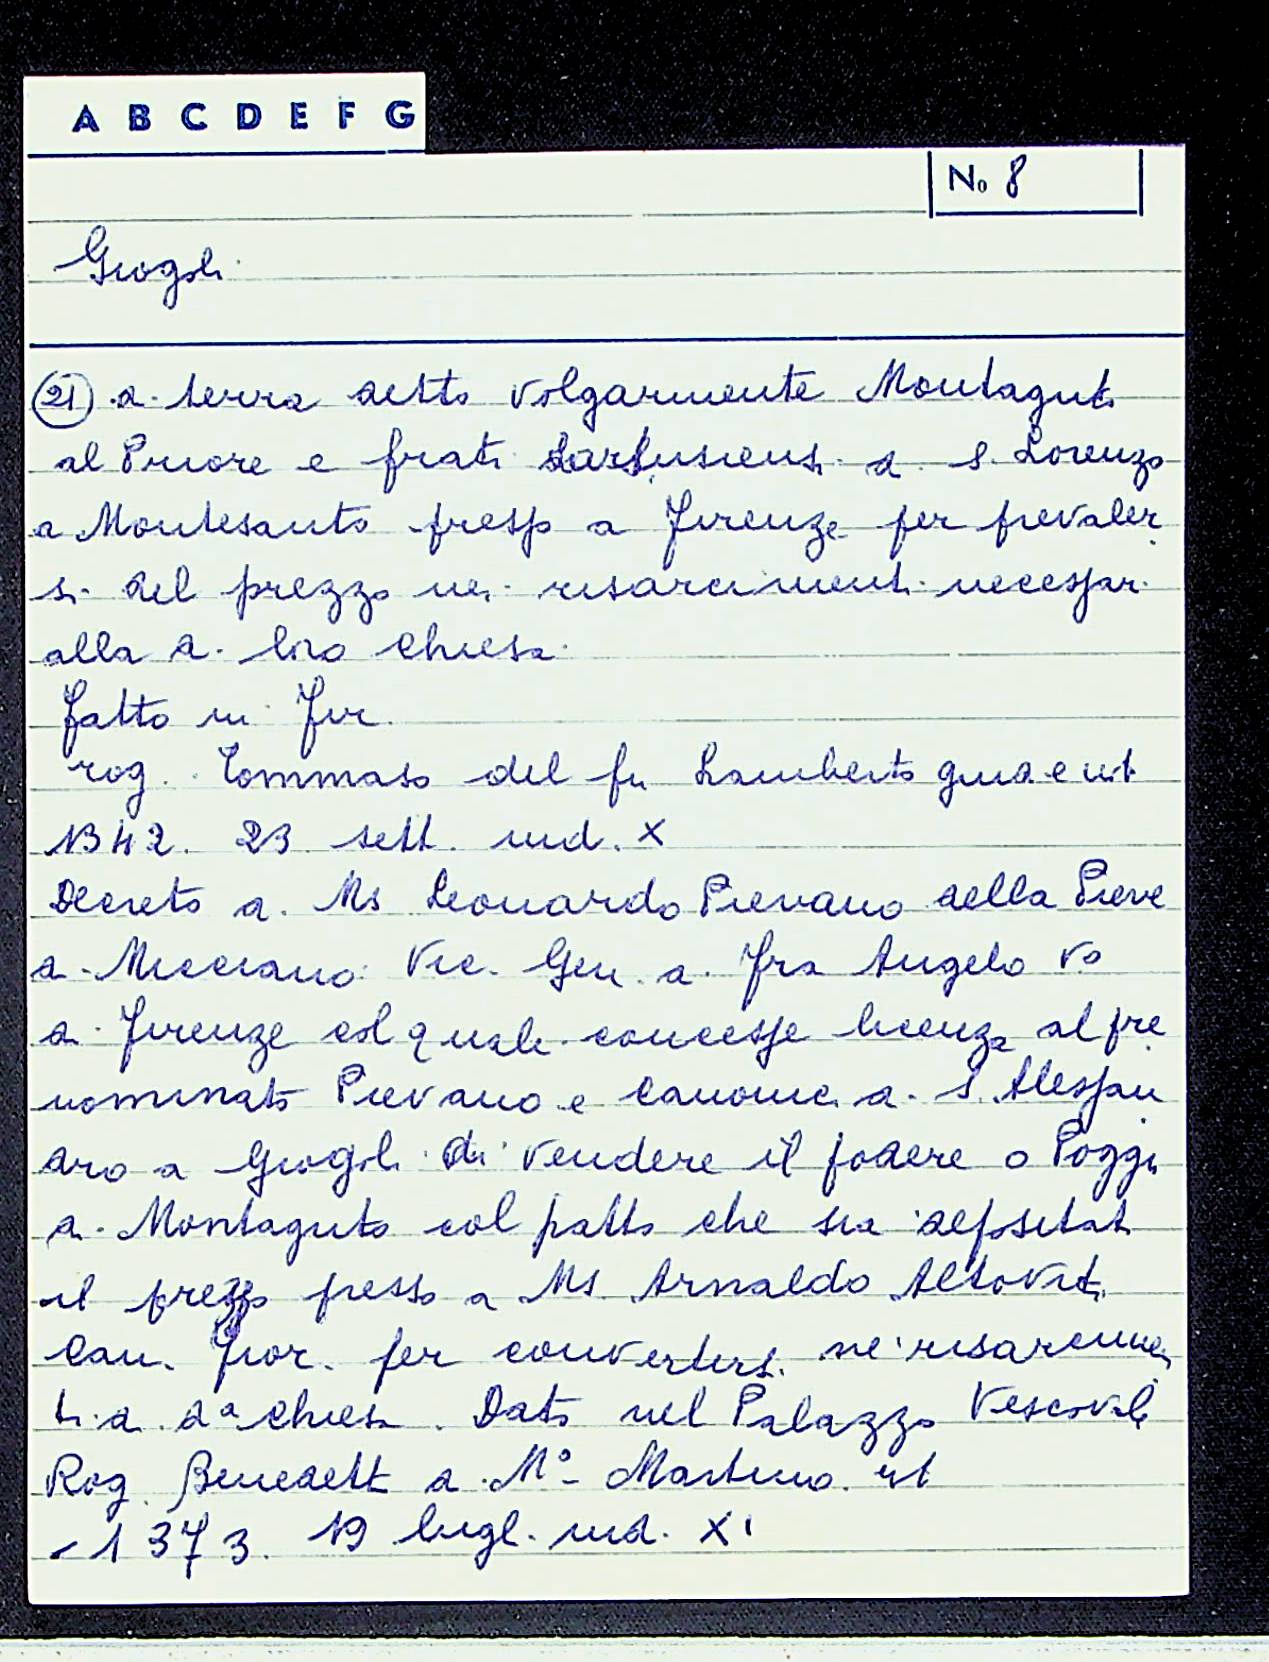 A B C D E F G
No 8
Giogoli
(21) d. terra detto volgarmente Montaguto
al Priore e frati Certusiensi d. S. Lorenzo
a Montesanto presso a Firenze per prevaler
si del prezzo nei risarcimenti necessari
alla d. loro chiesa
fatto in Fir.
rog. Tommaso del fu Lamberto
1342. 23 sett. ind. X
Decreto d. Ms Leonardo Pievano della Pieve
d. Micciano Vic. Gen. d. Fra Angelo Vo
d. Firenze col quale concesse licenza al pre
nominato Pievano e canonici d. S. Alessan
dro a Giogoli di vendere il podere o Poggi
d. Montaguto col patto che sia depositat
il prezzo presso a Ms. Arnaldo Altoviti
Can. Fior. per convertirsi ne' risarcimen
ti d. da chiesa. Dato nel Palazzo Vescovile
Rog. Benedett d. Mo Martino
1373. 19 lugl. ind. XI